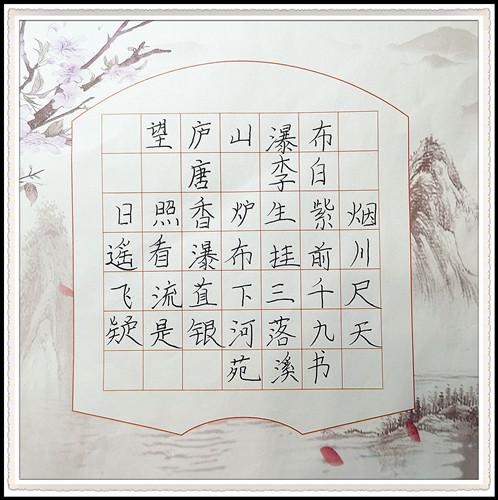 望庐山瀑布
唐 李白
日照香炉生紫烟
遥看瀑布挂前川
飞流直下三千尺
疑是银河落九天
苑溪书